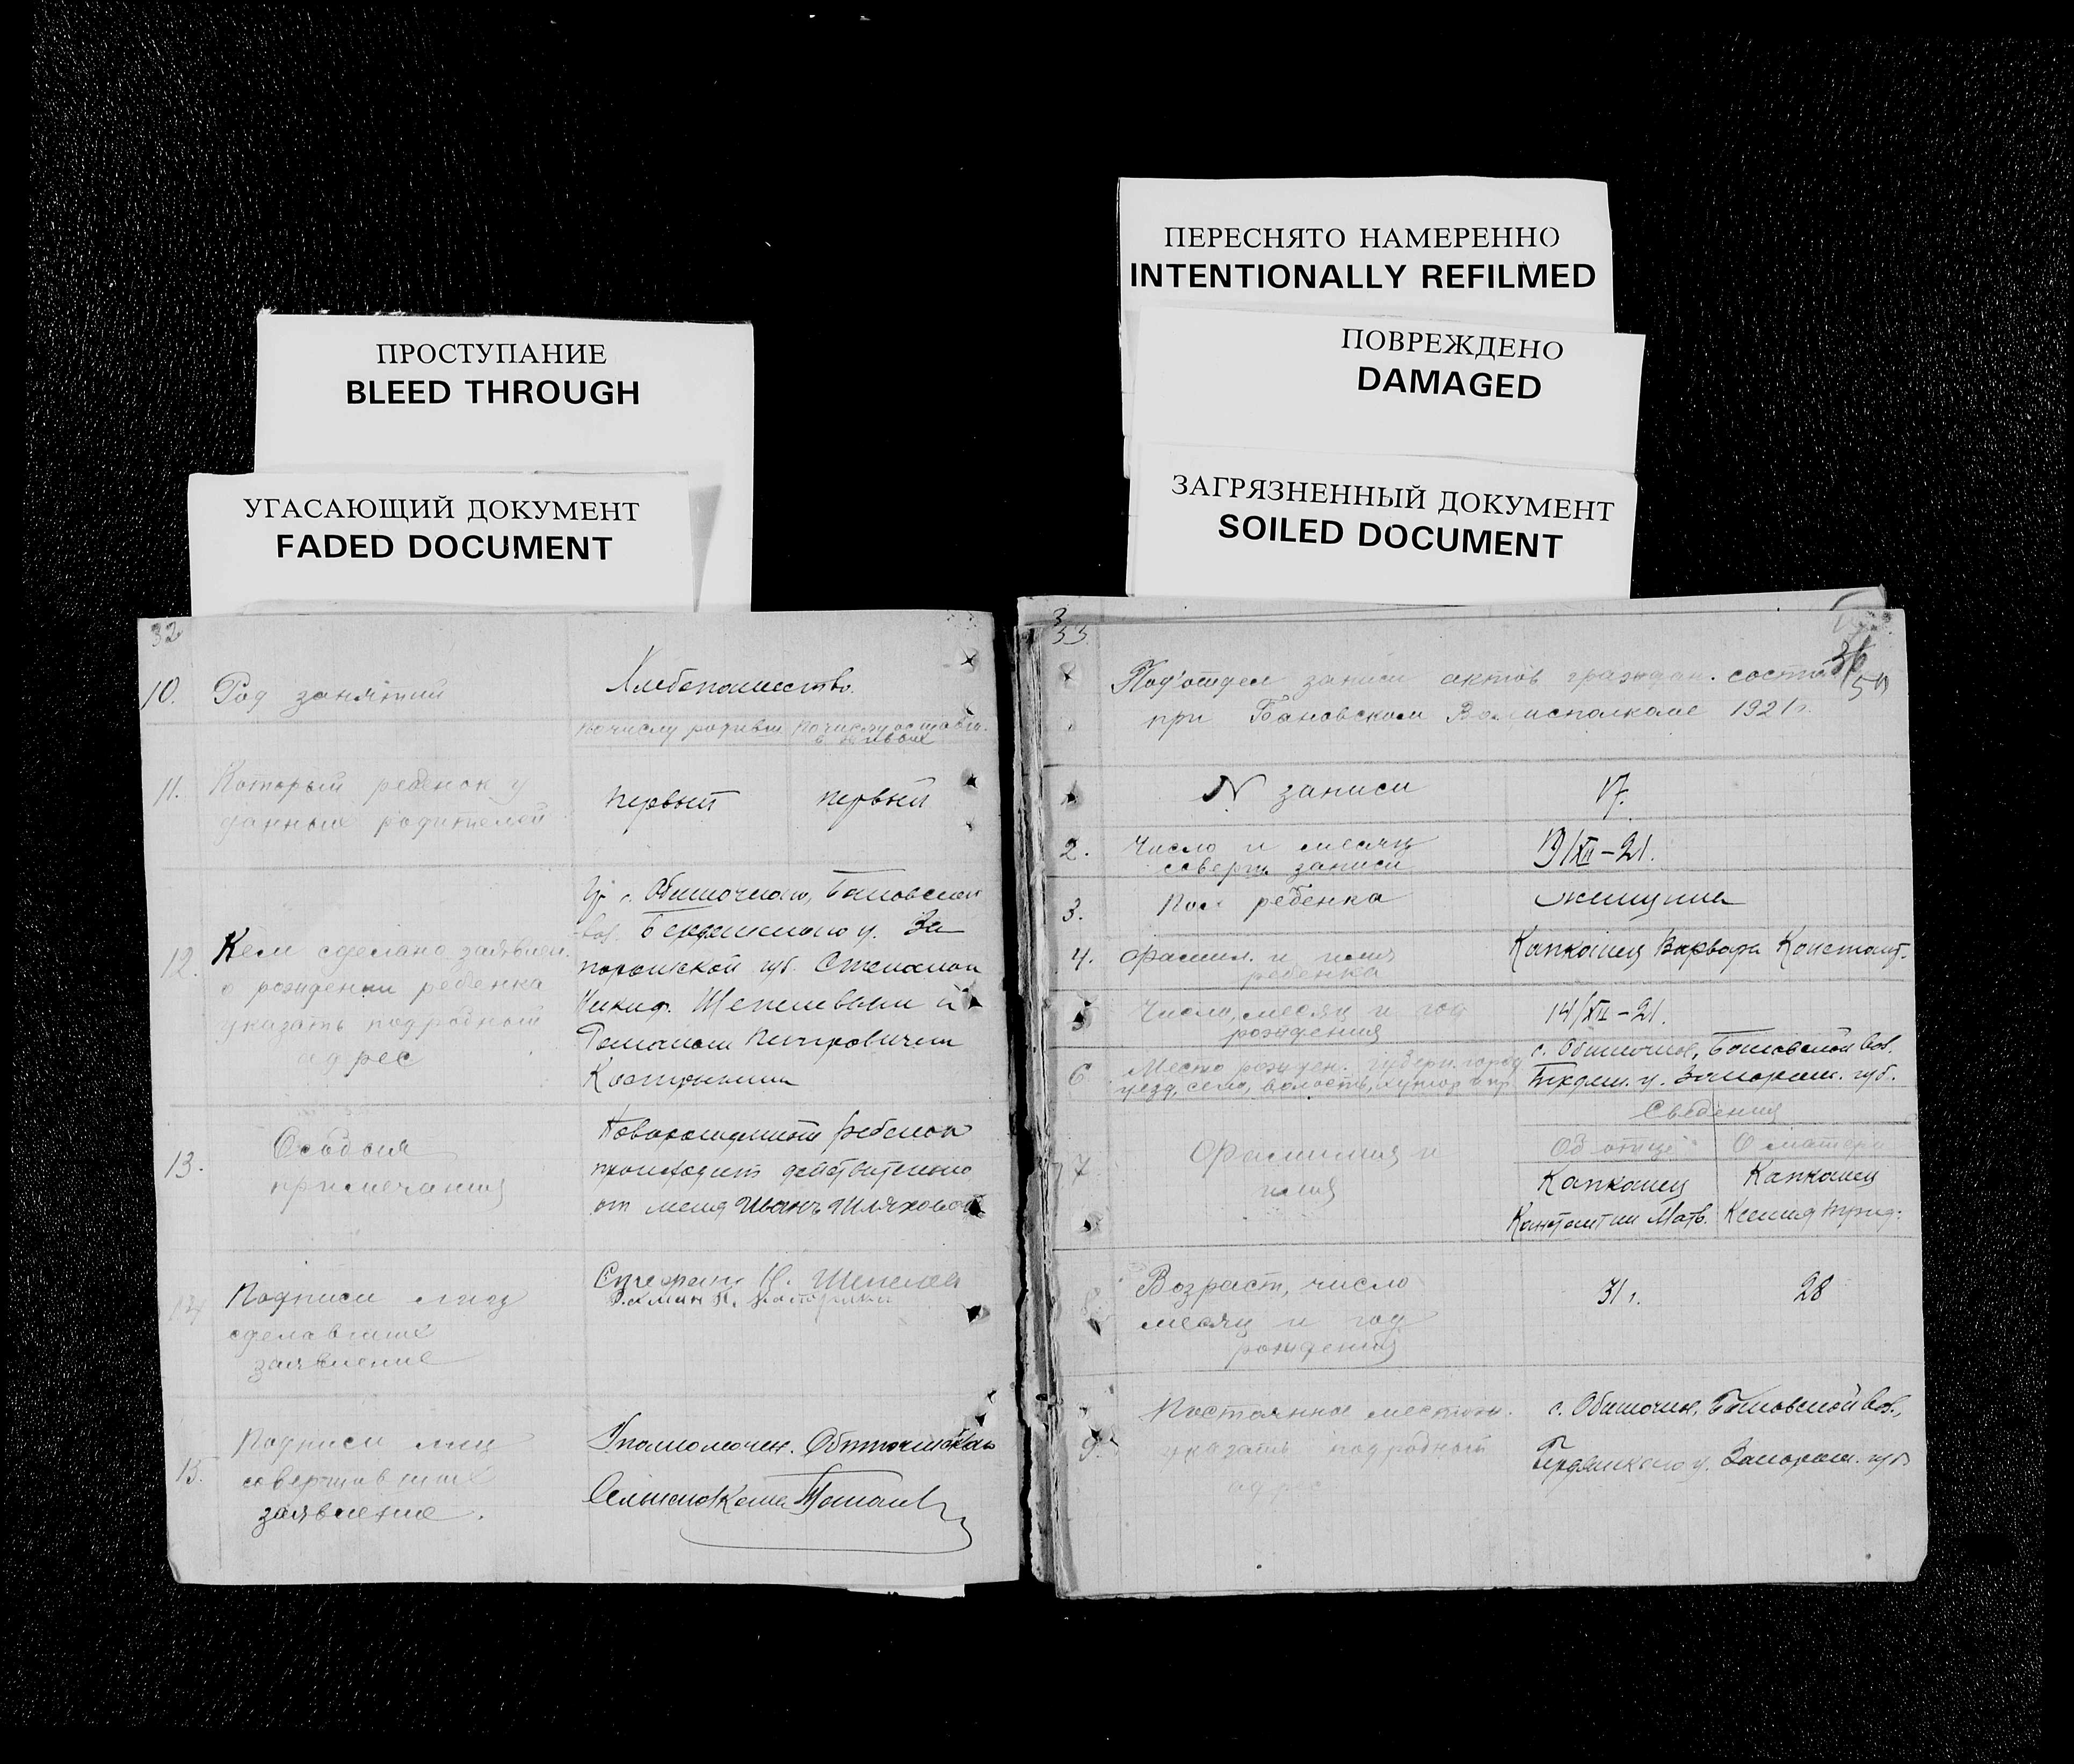 ПРОСТУПАНИЕ
BLEED THROUGH
УГАСАЮЩИЙ ДОКУМЕНТ
FADED DOCUMENT
ПЕРЕСНЯТО НАМЕРЕННО
INTENTIONALLY REFILMED
ПОВРЕЖДЕНО
DAMAGED
ЗАГРЯЗНЕННЫЙ ДОКУМЕНТ
SOILED DOCUMENT
32
10. Род занятий Хлебопашество.
По числу родивш По числу оставш.
в живых
11. Который ребенок у
данных родителей первый первый
Гр с. Обиточного, Бановской
вол. Бердянского у. За
12. Кем сделано заявлен.
порожской губ. Степаном
о рождении ребенка
Никиф. Шепелевым и
указать подробный
Романом Петровичем
адрес
13. Особыя
примечания
Новорожденный ребенок
происходит действительно
от меня Иванъ Шляховой
14 Подписи лиц
сделавшие
заявление
Н. Шепелев
15. Подписи лиц
совершавшие
заявление.
Уполномочен. Обиточенского
33.
36
Под'отдел записи актов граждан. состо
при Бановском Волисполкоме 1921г.
1 N записи 17.
2. Число и месяц
соверш записи 19/XII-21.
3. Пол ребенка женщина
4. Фамил. и имя
ребенка Капканец Варвара Констант.
5 Число, месяц и год
рождения 14/XII-21.
6 Место рожден. губерн. город
уезд, село, волость, хутор и пр
с. Обиточное, Бановской вол.
Бердян. у. Запорож. губ.
Сведения
Об отце О матери
7 Фамилия и
имя
Капканец Капканец
Константин Матв. Ксения
8 Возраст, число
месяц и год
рождения
31 г. 28
9. Постоянное местож.
указать подробный
адр
с. Обиточн. Бановской вол.,
Бердянского у. Запорож. губ